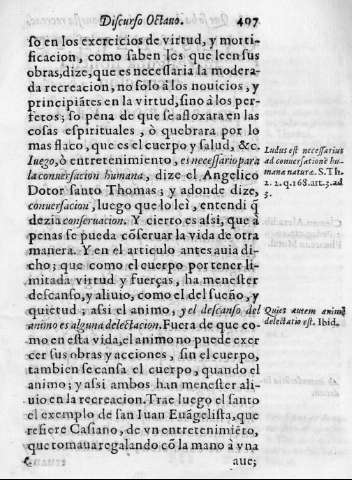 Discurso Octauo. 407
so en los exercicios de virtud, y morti-
ficacion, como saben los que leen sus
obras, dize, que es necessaria la modera-
da recreacion, no solo à los nouicios, y
principiãtes en la virtud, sino à los per-
fetos; so pena de que se afloxara en las
cosas espirituales, ò quebrara por lo
mas flaco, que es el cuerpo y salud, &c.
Iuego, ò entretenimiento, es necessario para
la conuersacion humana, dize el Angelico
Dotor santo Thomas; y adonde dize,
conuersacion, luego que lo leì, entendi q̃
dezia conseruacion. Y cierto es assi, que à
penas se pueda cõseruar la vida de otra
manera. Y en el articulo antes auia di-
cho; que como el cuerpo por tener li-
mitada virtud y fuerças, ha menester
descanso, y aliuio, como el del sueño, y
quietud; assi el animo, y el descanso del
animo es alguna delectacion. Fuera de que co-
mo en esta vida, el animo no puede exer
cer sus obras y acciones, sin el cuerpo,
tambien se cansa el cuerpo, quando el
animo; y assi ambos han menester ali-
uio en la recreacion. Trae luego el santo
el exemplo de san Iuan Euãgelista, que
refiere Casiano, de vn entretenimiẽto,
que tomaua regalando cõ la mano à vna
aue;
Ludus est necessarius
ad conuersationẽ hu-
manæ naturæ. S. Th.
2. 2. q. 168. art. 3. ad
3.
Quies autem animę
delectatio est. Ibid.